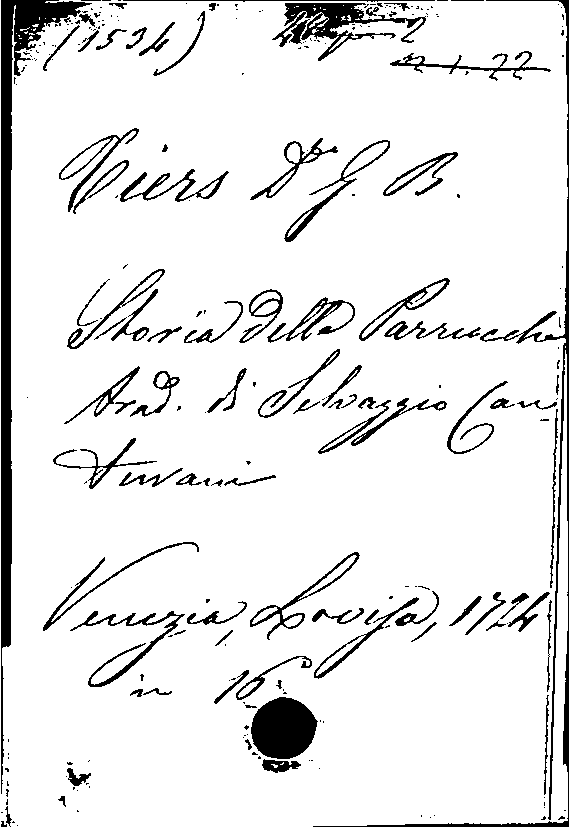 (1534) 2
12.1.22
Viers Dr. G. B.
Storia delle Parrucche
trad. di Selvaggio Can-
turani
Venezia, Lovisa, 1724
in 16°